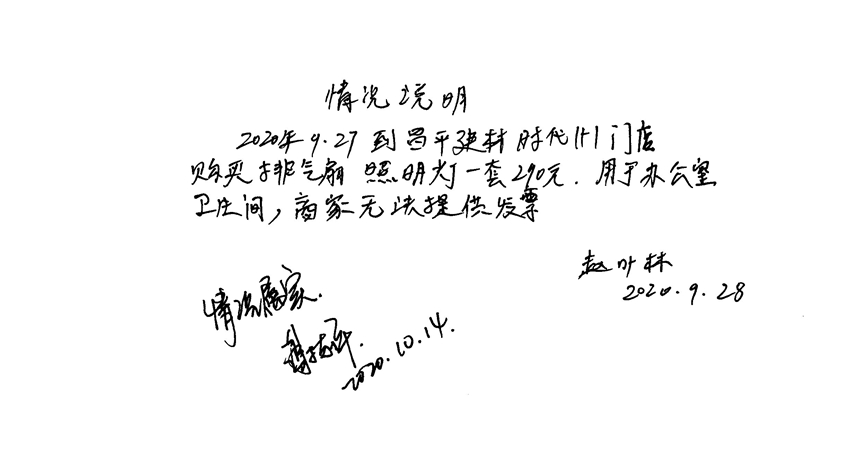 情况说明
2020年9.27到昌平建材时代1#1门店
购买排气扇照明灯一套290元.用于办公室
卫生间,商家无法提供发票
赵叶林
2020.9.28
情况属实.
2020.10.14.